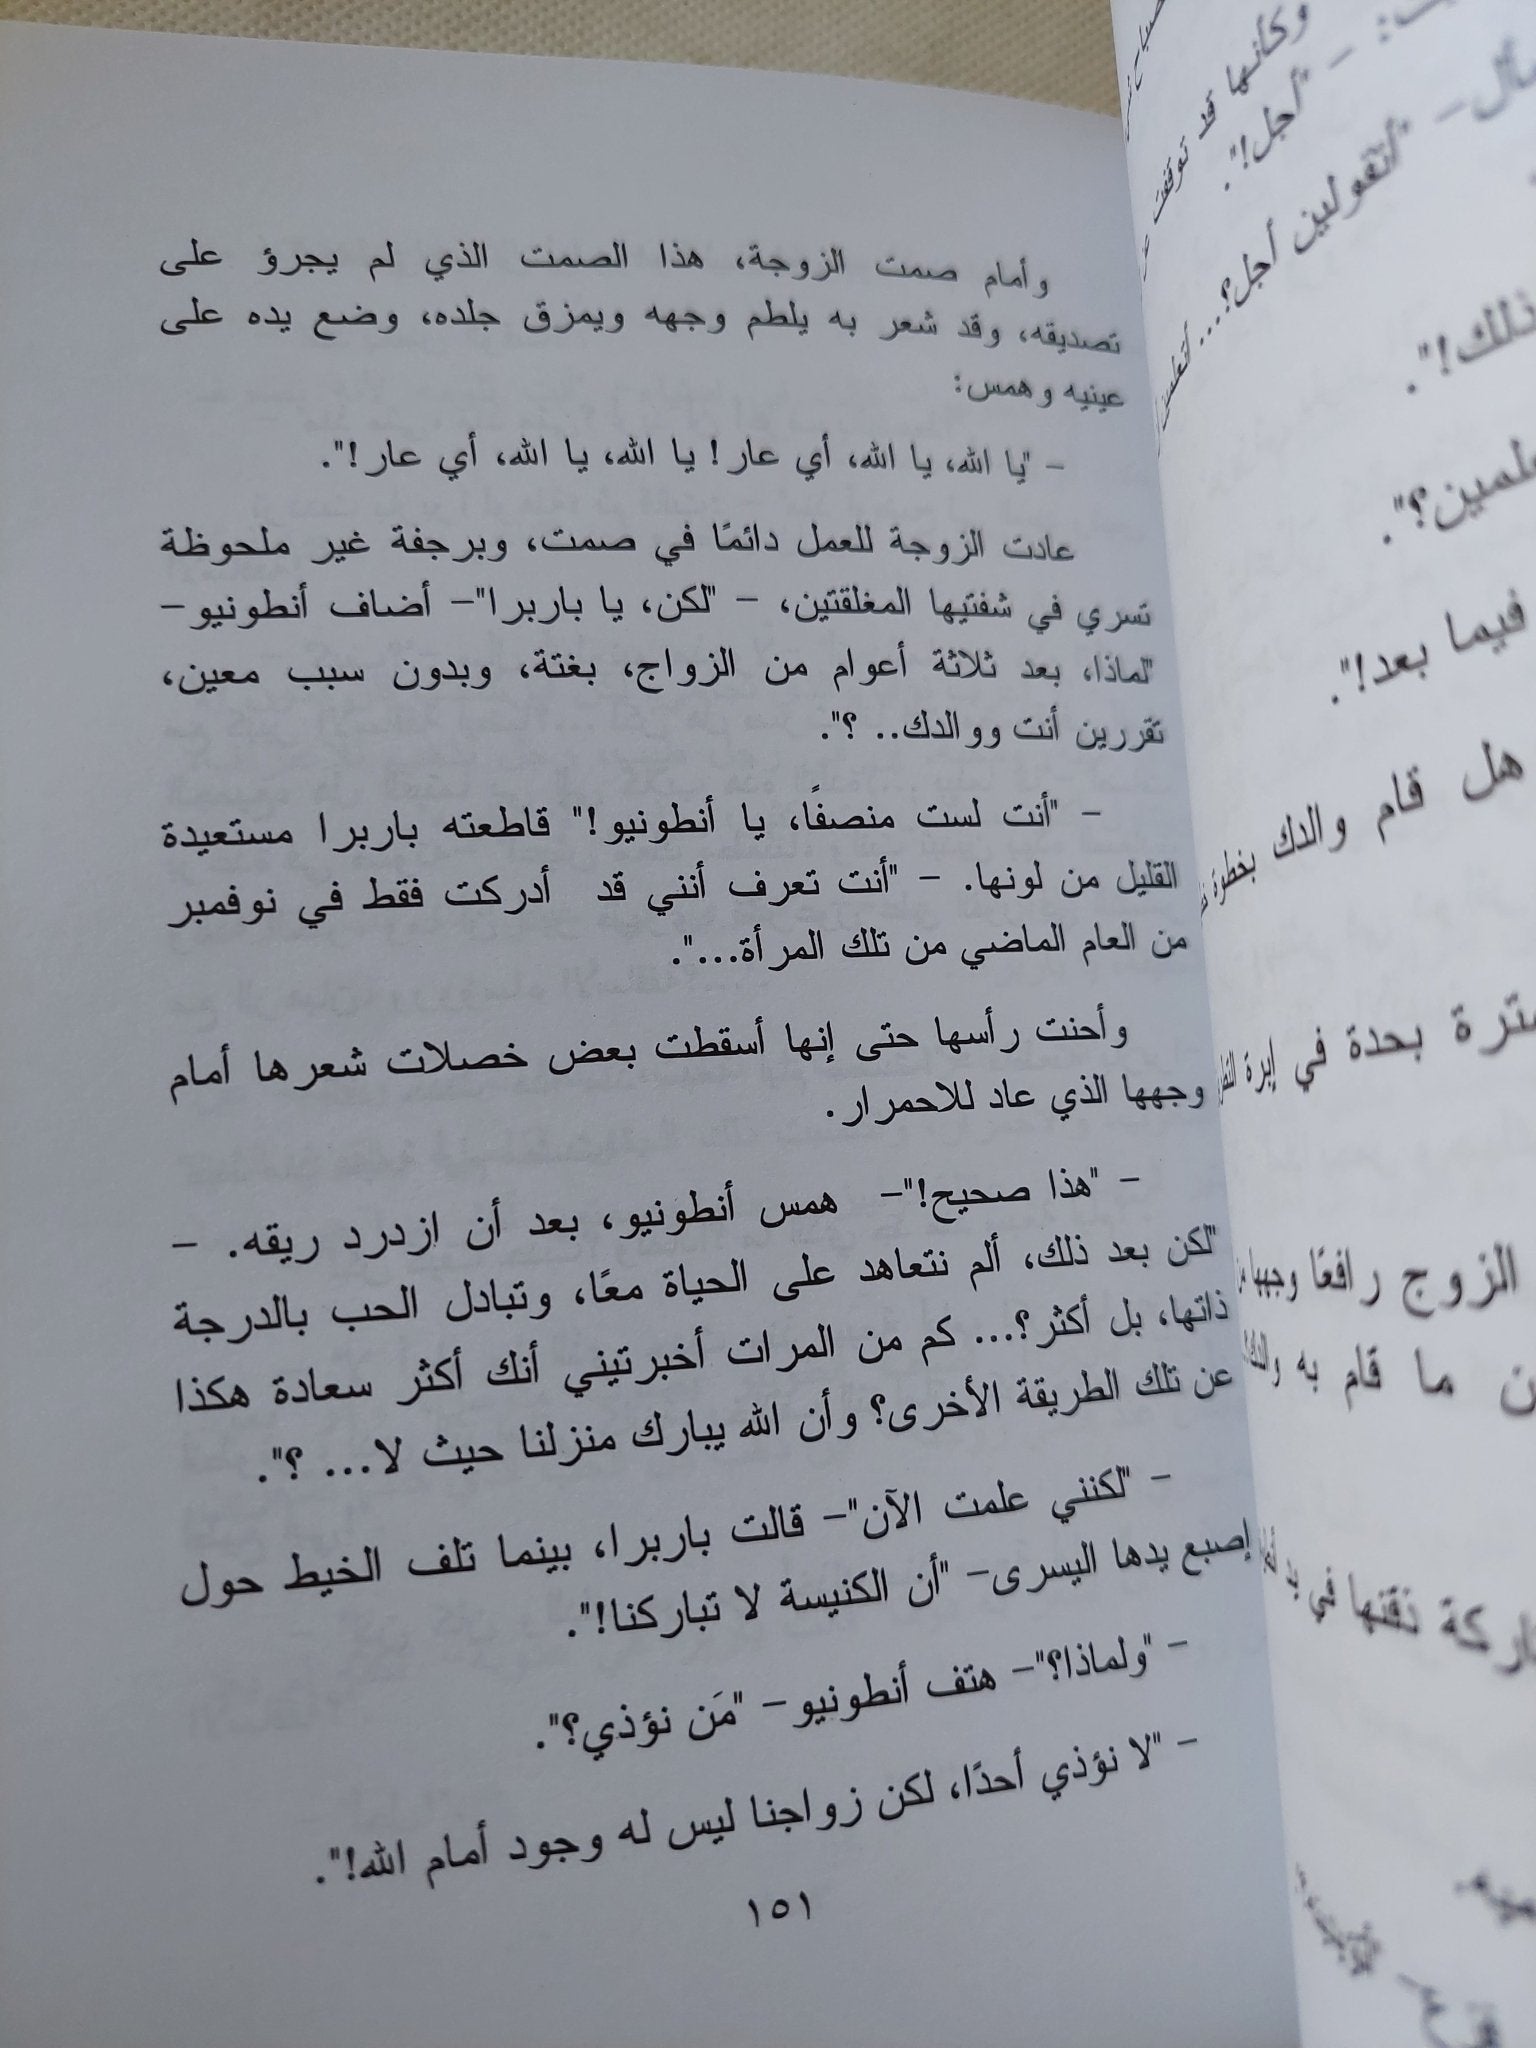 وأمام صمت الزوجة، هذا الصمت الذي لم يجرؤ على
تصديقه، وقد شعر به يلطم وجهه ويمزق جلده، وضع يده على
عينيه وهمس:
– "يا الله، يا الله، أي عار! يا الله، يا الله، أي عار!".
عادت الزوجة للعمل دائمًا في صمت، وبرجفة غير ملحوظة
تسري في شفتيها المغلقتين، – "لكن، يا باربرا"– أضاف أنطونيو–
"لماذا، بعد ثلاثة أعوام من الزواج، بغتة، وبدون سبب معين،
تقررين أنت ووالدك.. ؟".
– "أنت لست منصفًا، يا أنطونيو!" قاطعته باربرا مستعيدة
القليل من لونها. – "أنت تعرف أنني قد أدركت فقط في نوفمبر
من العام الماضي من تلك المرأة...".
وأحنت رأسها حتى إنها أسقطت بعض خصلات شعرها أمام
وجهها الذي عاد للاحمرار.
– "هذا صحيح!"– همس أنطونيو، بعد أن ازدرد ريقه. –
"لكن بعد ذلك، ألم نتعاهد على الحياة معًا، وتبادل الحب بالدرجة
ذاتها، بل أكثر؟... كم من المرات أخبرتيني أنك أكثر سعادة هكذا
عن تلك الطريقة الأخرى؟ وأن الله يبارك منزلنا حيث لا... ؟".
– "لكنني علمت الآن"– قالت باربرا، بينما تلف الخيط حول
إصبع يدها اليسرى– "أن الكنيسة لا تباركنا!".
– "ولماذا؟"– هتف أنطونيو– "مَن نؤذي؟".
– "لا نؤذي أحدًا، لكن زواجنا ليس له وجود أمام الله!".
١٥١
وكأنها قد توقفت
– "أجل!".
"أتقولين أجل؟...
ذلك!".
فيما بعد!".
هل قام والدك بخطوة
بحدة في إبرة
الزوج رافعًا وجهها
ما قام به والدك
ذقنها في